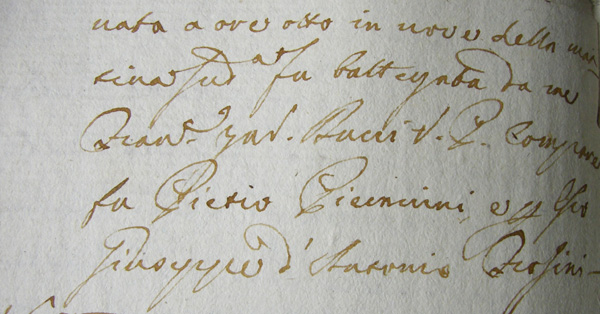 nata a ore otto in nove della mat
tina sud.ª fu battezzata da me
Fran.º Ant. Bucci V. P. Compare
fu Pietro Piccinini, e
Giuseppe d' Antonio